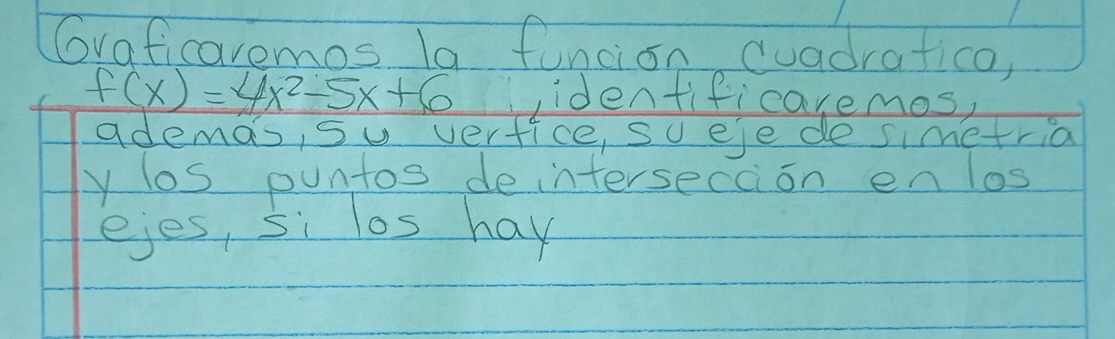 Graficaremos la función cuadratica,
f(x)=4x²-5x+6 , identificaremos,
además, su vertice, su eje de simetria
y los puntos de intersección en los
ejes, si los hay